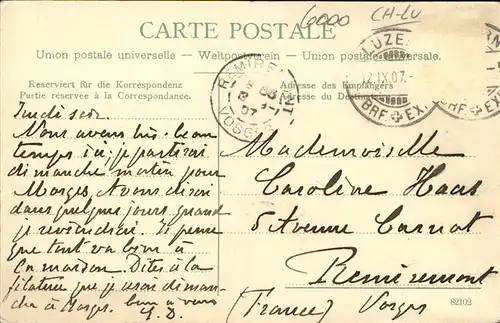 6000
CH-LU
CARTE POSTALE
Union postale universelle. – Weltpostverein – Union postale universale.
Reserviert für die Korrespondenz
Partie réservée à la Correspondance.
Adresse des Empfängers
Adresse du
LUZE
12.IX.07.
BRF EX.
REMIREMONT
VOSGES
07
Jeudi soir
Nous avons très beau
temps ici, je partirai
dimanche matin pour
Morges, Avons
dans quelques jours quand
je reviendrai. Je pense
que tout va bien à
la maison. Dites à la
filature que je serai diman-
che à Morges. bien à vous
Mademoiselle
Caroline Haas
5 Avenue Carnot
Remiremont
(France) Vosges
82102